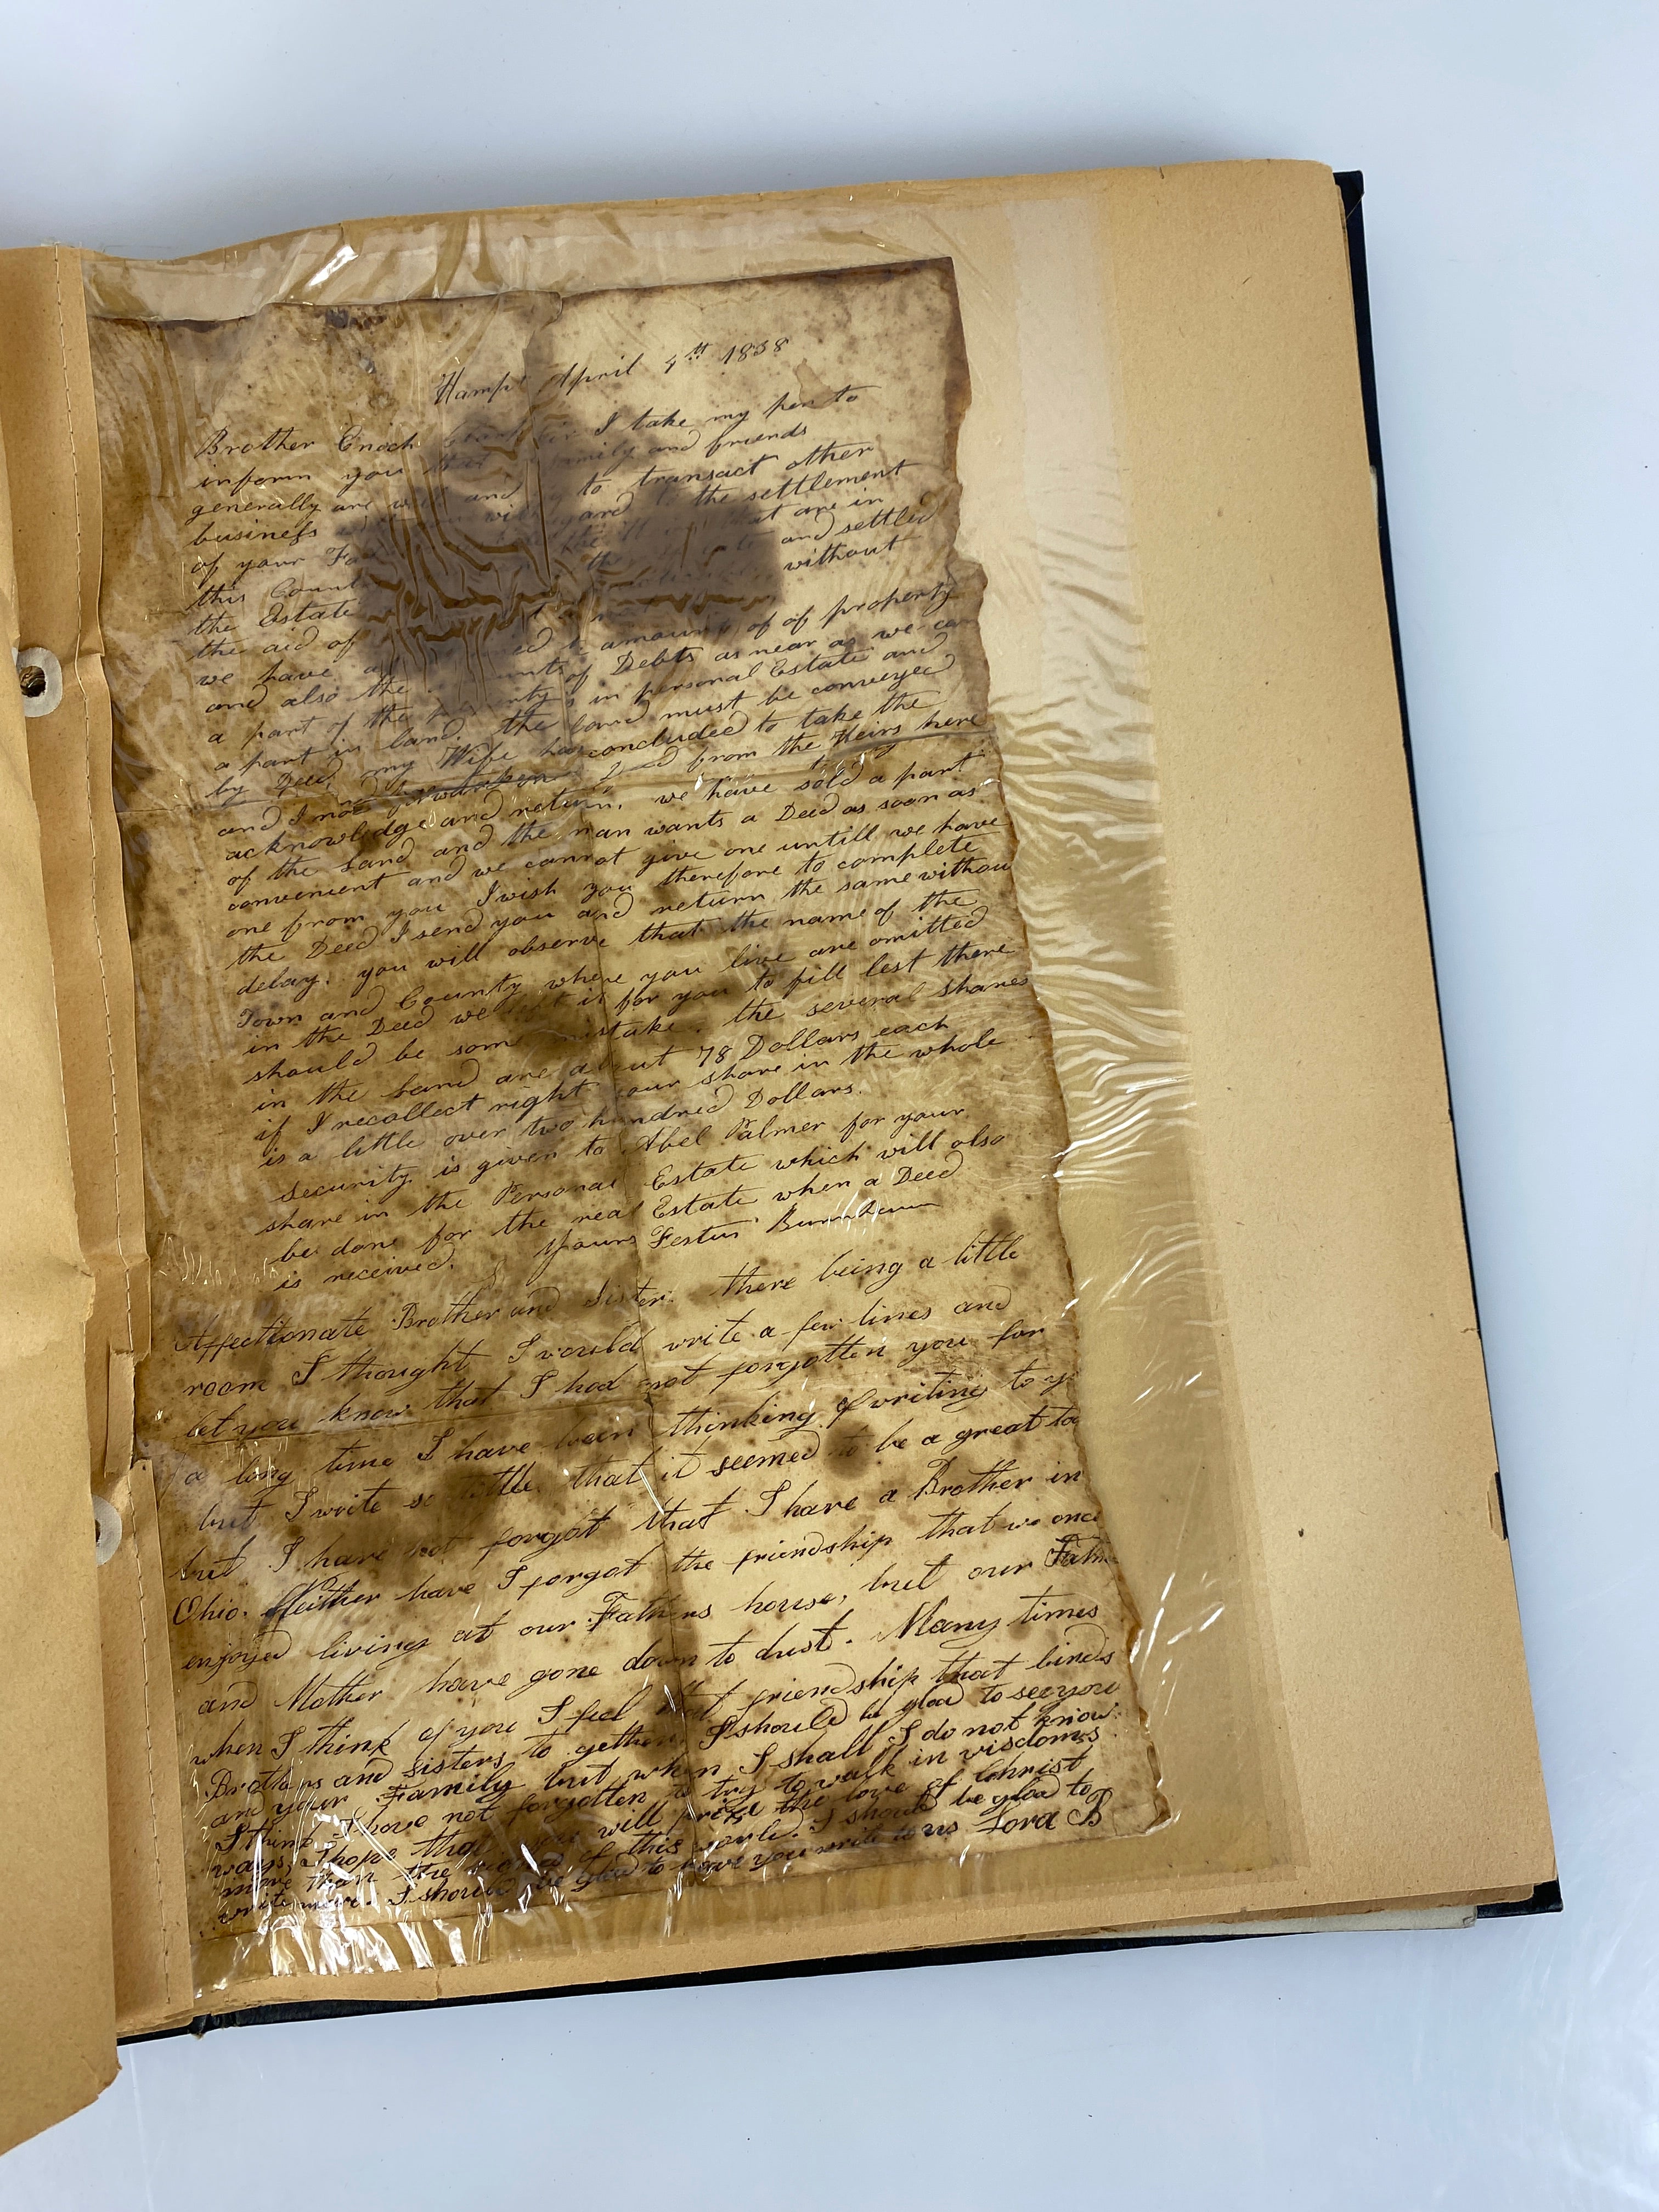 Hamp April 4th 1838
Brother Enoch I take my pen to
inform you family and friends
generally are well and to transact other
business regard to the settlement
of your that are in
this and settled
the Estate without
the aid of
we have amount of of property
and also the of Debts as near as we can
a part of the is in personal Estate and
a part in land. the land must be conveyed
by Deed, my Wife has concluded to take the
and I from the Heirs here
acknowledge and return. we have sold a part
of the Land and the man wants a Deed as soon as
convenient and we cannot give one untill we have
one from you I wish you therefore to complete
the Deed I send you and return the same withou
delay. you will observe that the name of the
Town and County where you live are omitted
in the Deed we left it for you to fill lest there
should be some mistake. the several shares
in the Land are about 78 Dollars each
if I recollect right your share in the whole
is a little over two hundred Dollars.
Security is given to Abel Palmer for your
share in the Personal Estate which will also
be done for the real Estate when a Deed
is received. Yours Festus Burnham
Affectionate Brother and Sister. there being a little
room I thought I would write a few lines and
let you know that I had not forgotten you for
a long time I have been thinking of writing to y
but I write so little that it seemed to be a great ta
but I have not forgot that I have a Brother in
Ohio. Neither have I forgot the friendship that we once
enjoyed living at our Fathers house, but our Fath
and Mother have gone down to dust. Many times
when I think of you I feel that friendship that binds
Brothers and sisters to gether. I should be glad to see you
and your Family but when I shall I do not know.
I think I have not forgotten to try to walk in wisdoms
ways, I hope that you will prize the love of Christ
more than the of this world. I should be glad to
write more. I should be glad to have you write to us Lora B